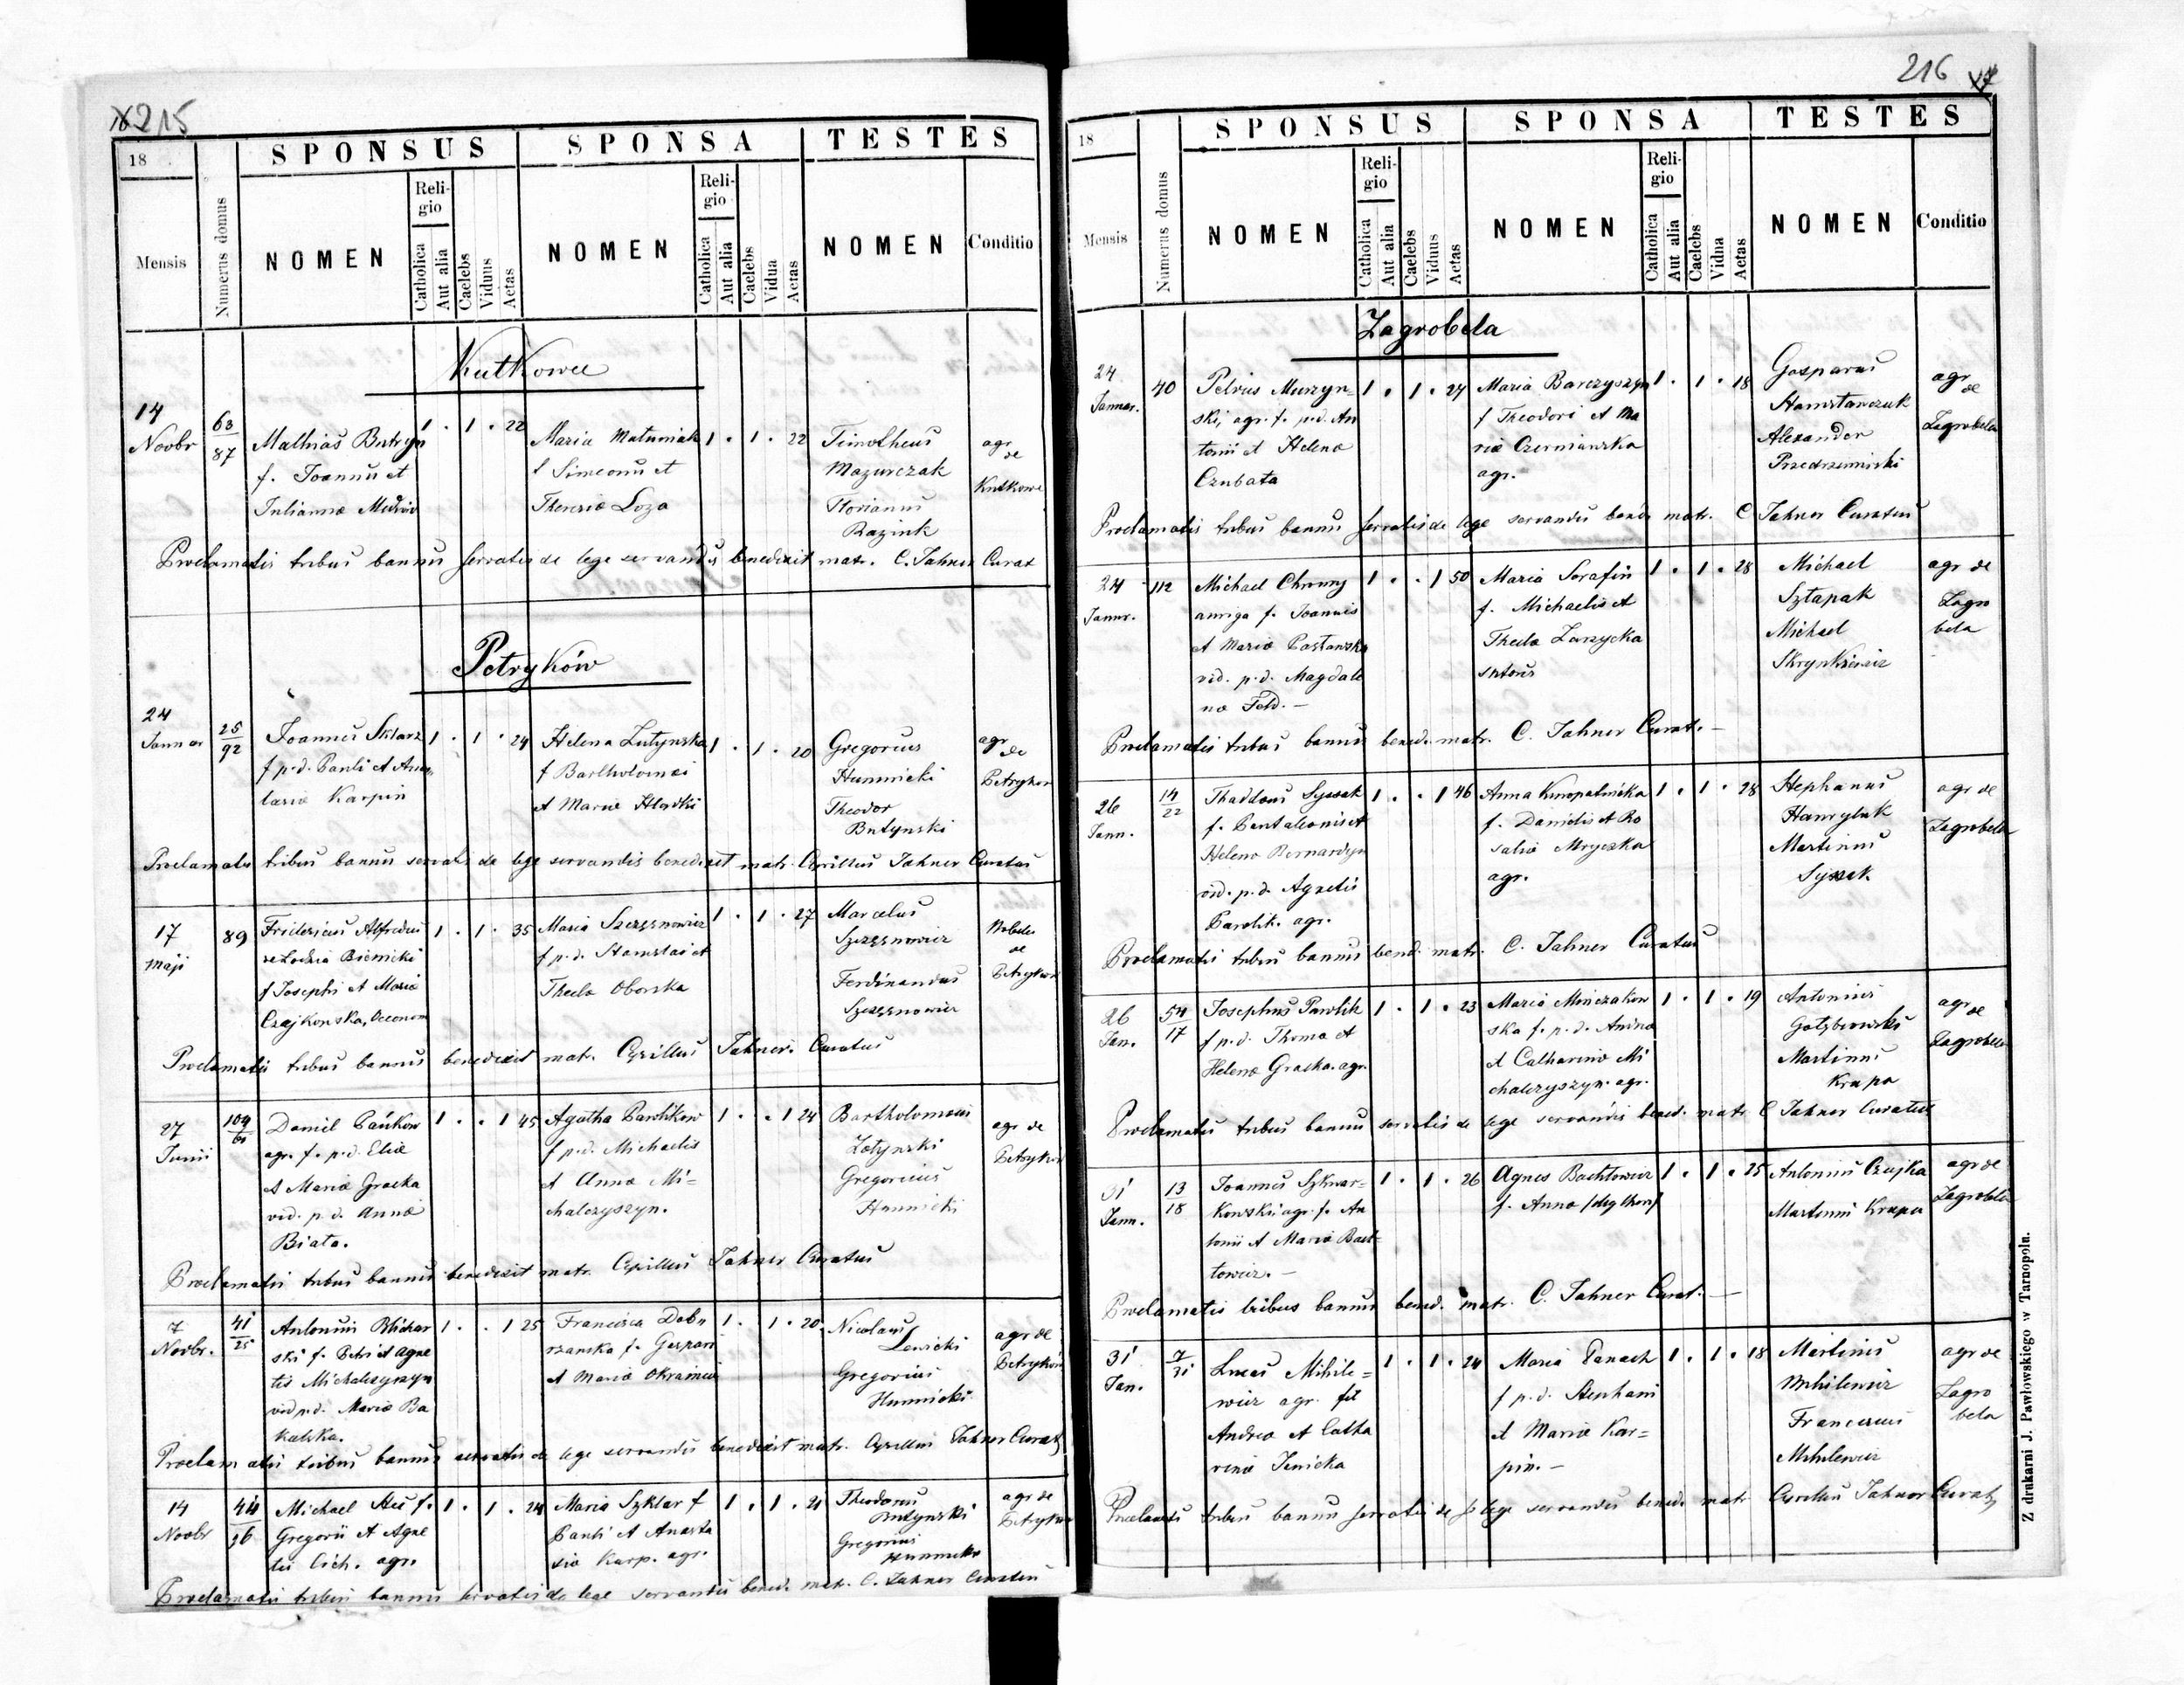 215
18
SPONSUS
SPONSA
TESTES
Mensis
Numerus domus
NOMEN
Religio
Catholica
Aut alia
Caelebs
Viduus
Aetas
NOMEN
Religio
Catholica
Aut alia
Caelebs
Vidua
Aetas
NOMEN
Conditio
Kutkowce
14
Novbr
63
87
Mathias Butryn
f. Joannis et
Julianna
1 . 1 . 22
Maria Matuniak
f Simeonis et
Theresia Loza
1 . 1 . 22
Timotheus
Mazurczak
Florianus
Razink
agr
de
Kutkowce
Proclamatis tribus bannis servatis de lege servandis benedixit matr. C. Jahner Curat
Petryków
24
Januar
25
92
Joannes Sklarz
f p.d. Pauli et Anas
tasia Karpin
1 . 1 . 24
Helena Lutynska
f Bartholomei
et Maria
1 . 1 . 20
Gregorius
Humnicki
Theodor
Butynski
agr
de
Petrykow
Proclamatis tribus bannis servatis de lege servandis benedixit matr. Cyrillus Jahner Curatus
17
Maji
89
Fridericus Alfredus
de Lodzia Biernicki
f Josephi et Maria
Czajkowska, Oeconom
1 . 1 . 35
Maria Szczęsnowicz
f p.d. Stanislai et
Thecla Oborska
1 . 1 . 27
Marcelus
Szczęsnowicz
Ferdinandus
Szczęsnowicz
Nobiles
de
Petryków
Proclamatis tribus bannis benedixit matr. Cyrillus Jahner. Curatus
27
Junii
109
61
Daniel Pańkow
agr. f. p.d. Eliæ
et Maria Gracka
vid. p. d. Anna
Biała.
1 . . 1 45
Agatha Pawlikow
f p.d. Michaelis
et Anna Mi=
chalczyszyn.
1 . . 1 24
Bartholomeus
Lotynski
Gregorius
Humnicki
agr de
Petryków
Proclamatis tribus bannis benedixit matr. Cyrillus Jahner Curatus
7
Novbr.
41
25
Antonius Blichar
ski f. Petri et Agne
tis Michalczyszyn
vid p.d. Maria Ba
kalska.
1 . . 1 25
Francisca Dob
rzanska f. Gaspari
et Maria
1 . 1 . 20
Nicolaus
Lewicki
Gregorius
Humnicki
agr de
Petryków
Proclamatis tribus bannis servatis de lege servandis benedixit matr. Cyrillus Jahner Curat
14
Novbr
44
96
Michael Hus f.
Gregorii et Agne
tis Cich. agr.
1 . 1 . 24
Maria Szklar f
Pauli et Anasta
sia Karp. agr.
1 . 1 . 21
Theodorus
Butynski
Gregorius
Humnicki
agr de
Petryków
Proclamatis tribus bannis servatis de lege servandis bened. matr. C. Jahner Curatus
216
18
SPONSUS
SPONSA
TESTES
Mensis
Numerus domus
NOMEN
Religio
Catholica
Aut alia
Caelebs
Viduus
Aetas
NOMEN
Religio
Catholica
Aut alia
Caelebs
Vidua
Aetas
NOMEN
Conditio
Zagrobela
24
Januar.
40
Petrus Murzyn=
ski, agr. f. p.d. An
tonii et Helena
Czubata
1 . 1 . 27
Maria Barczyszyn
f Theodori et Ma
ria Czerniawska
agr.
1 . 1 . 18
Gasparus
Alexander
agr
de
Zagrobela
Proclamatis tribus bannis servatis de lege servandis bened. matr. C Jahner Curatus
24
Januar.
112
Michael Chromy
auriga f. Joannis
et Maria Postawska
vid. p.d. Magdale
na Feld. —
1 . . 1 50
Maria Serafin
f. Michaelis et
Thecla Zarzycka
1 . 1 . 28
Michael
Sztapak
Michael
agr de
Zagro
bela
Proclamatis tribus bannis bened. matr. C. Jahner Curat. —
26
Jann.
14
22
Thaddeus Syssak
f. Pantaleonis et
Helena Bernardyn
vid. p.d. Agnetis
Pawlik. agr.
1 . . 1 46
Anna Knopatnicka
f. Danielis et Ro
salia Mryczka
agr.
1 . 1 . 28
Stephanus
Hawryluk
Martinus
Syssak.
agr de
Zagrobela
Proclamatis tribus bannis bened. matr. C. Jahner Curatus
26
Jan.
54
17
Josephus Pawlik
f p.d. Thoma et
Helena Gracka. agr.
1 . 1 . 23
Maria Minczakow
ska f. p. d. Andrea
et Catharina Mi
chalczyszyn. agr.
1 . 1 . 19
Antonius
Gołębiowski
Martinus
Krupa
agr
de
Zagrobela
Proclamatis tribus bannis servatis de lege servandis bened. matr. C Jahner Curatus
31
Jann.
13
18
Joannes Szkwar=
kowski agr. f. An
tonii et Maria Bach=
towicz. —
1 . 1 . 26
Agnes Bachtowicz
f. Anna
1 . 1 . 25
Antonius Czajka
Martinus Krupa
agr de
Zagrobela
Proclamatis tribus bannis bened. matr. C. Jahner Curat. —
31
Jan.
7
31
Lucas Mihile=
wicz agr. fil
Andrea et Catha
rina Jenicka
1 . 1 . 24
Maria Panach
f p.d. Stephani
et Maria Kar=
pin. —
1 . 1 . 18
Martinus
Mihilewicz
Franciscus
Mihilewicz
agr de
Zagro
bela
Proclamatis tribus bannis servatis de lege servandis bened. matr Cyrillus Jahner Curat
Z drukarni J. Pawłowskiego w Tarnopolu.